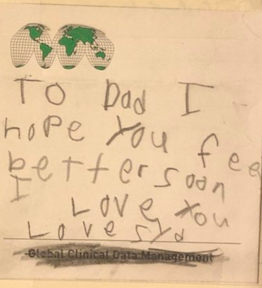 To Dad I
hope you fee
better soon
I Love you
Love
Global Clinical Data Management